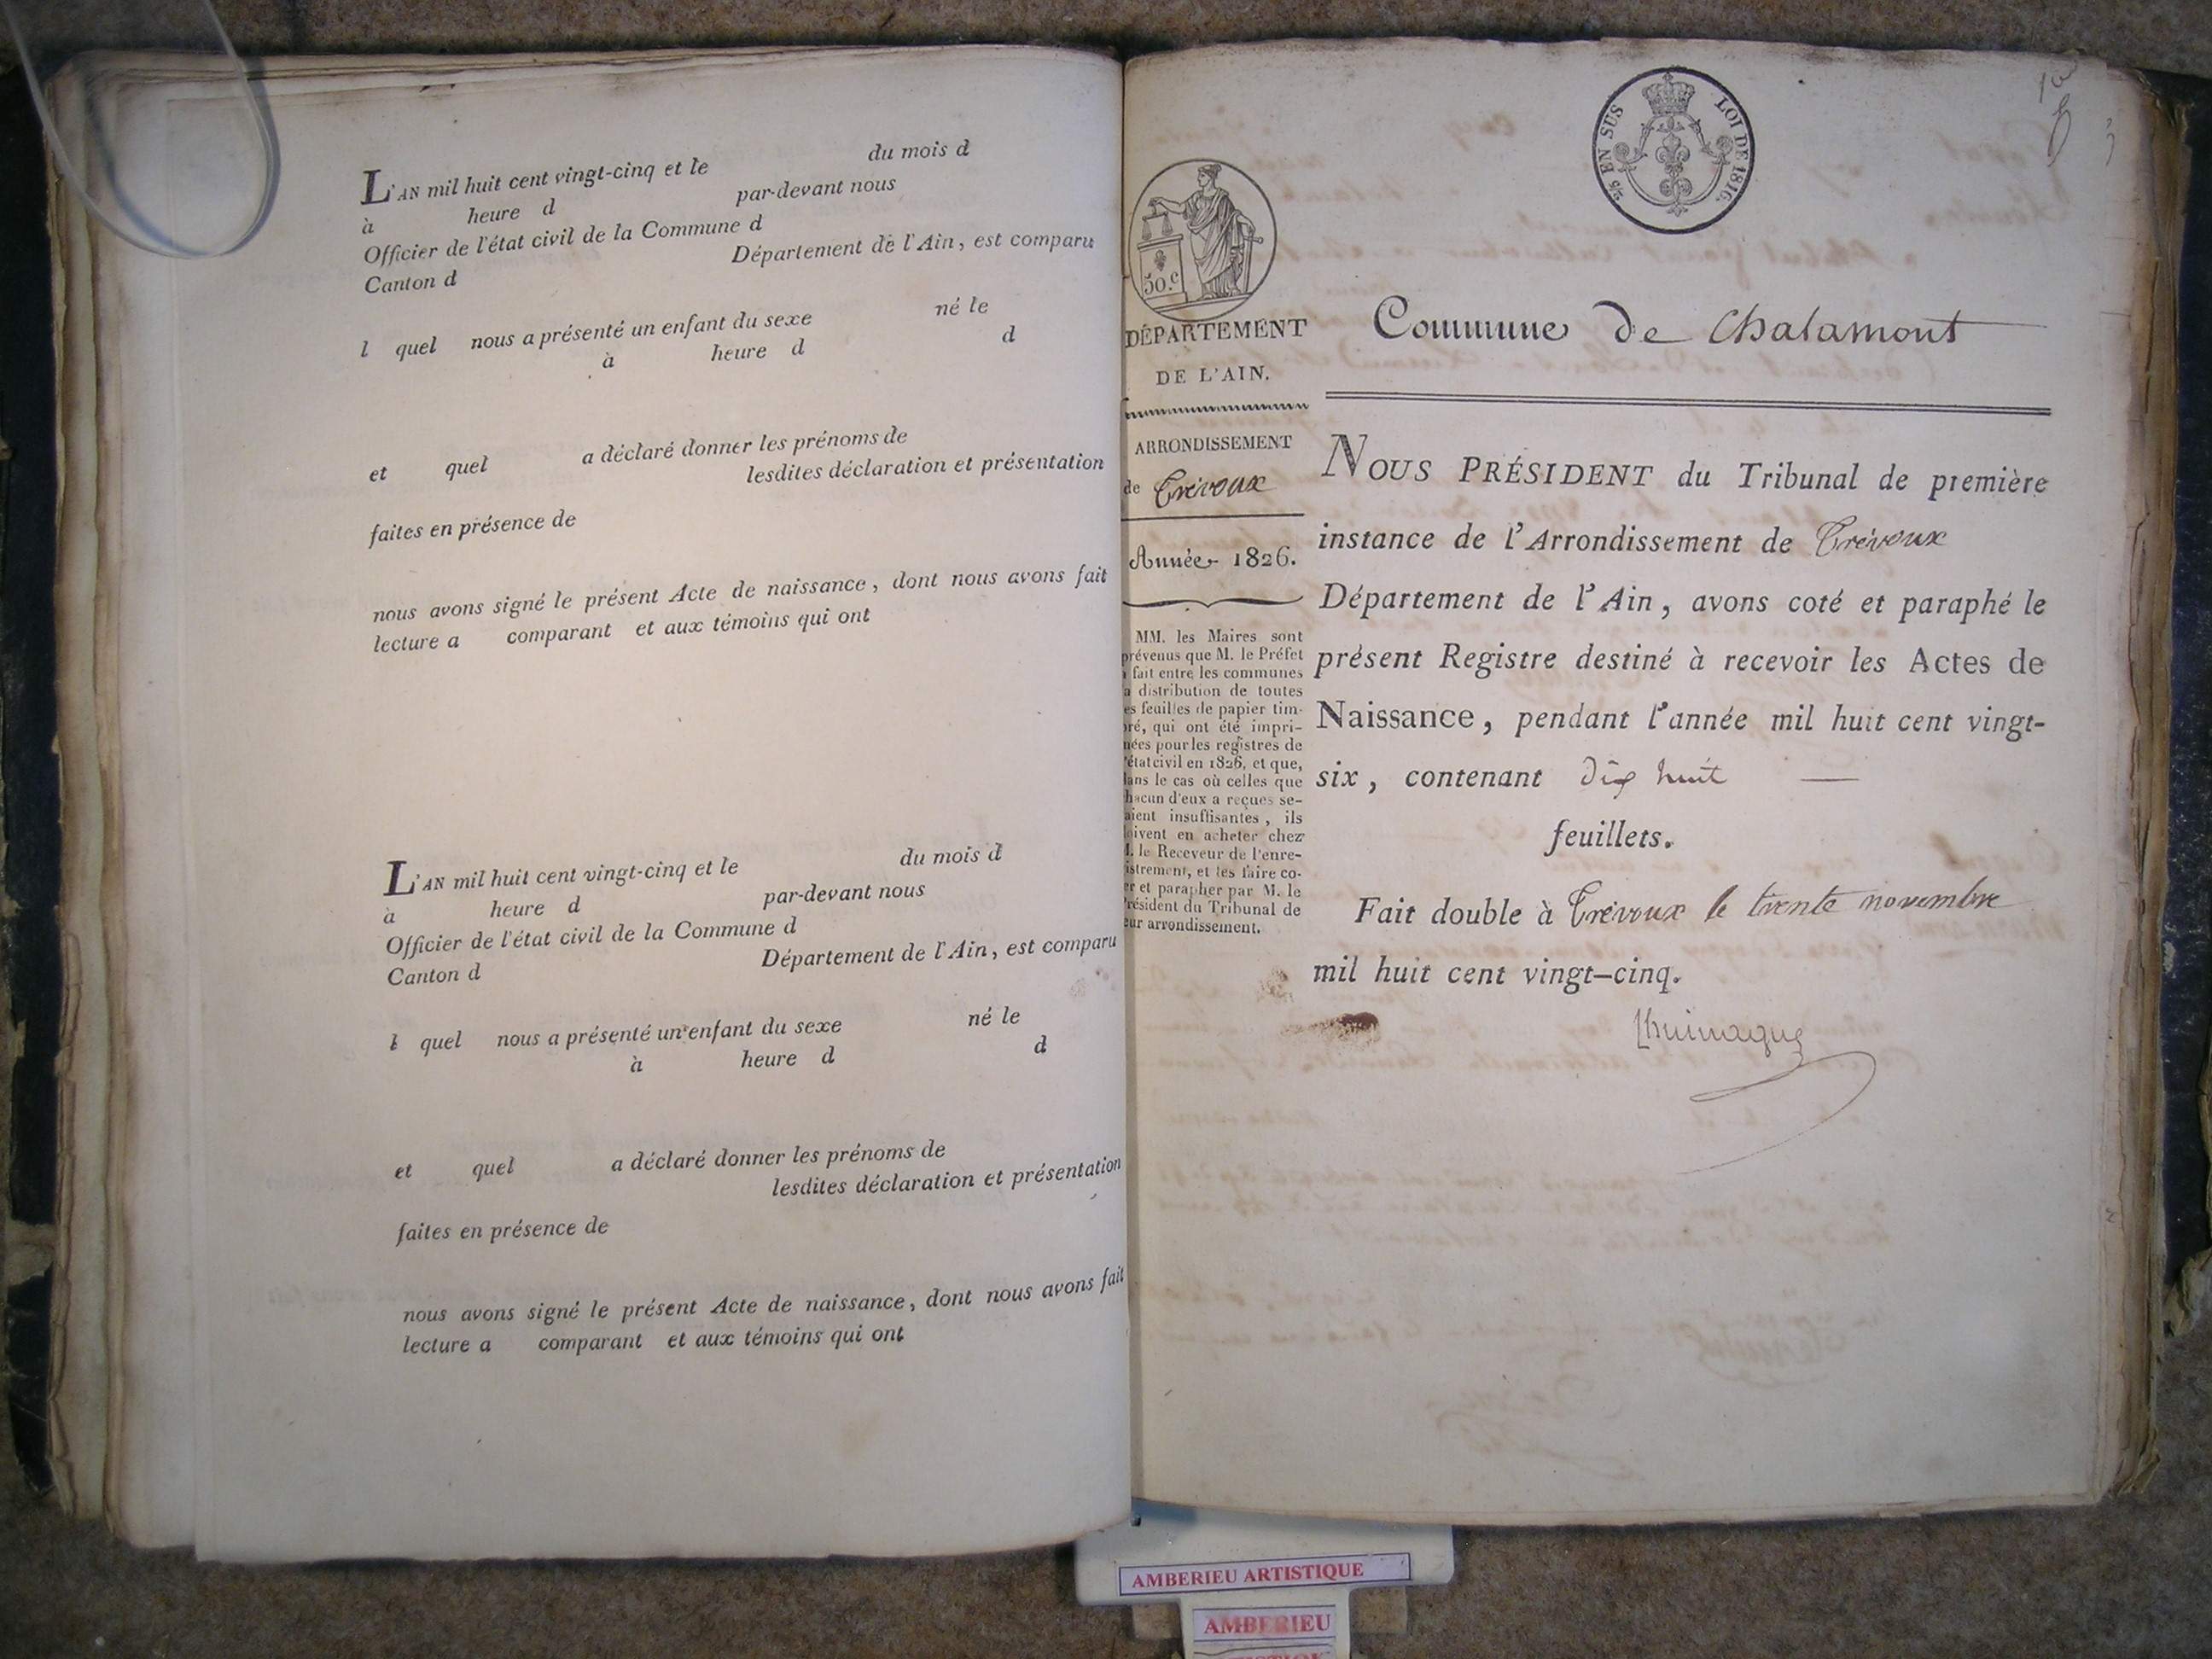 L'AN mil huit cent vingt-cinq et le du mois d
à heure d par-devant nous
Officier de l'état civil de la Commune d
Canton d Département de l'Ain, est comparu
l quel nous a présenté un enfant du sexe né le
à heure d d
et quel a déclaré donner les prénoms de
lesdites déclaration et présentation
faites en présence de
nous avons signé le présent Acte de naissance, dont nous avons fait
lecture a comparant et aux témoins qui ont
L'AN mil huit cent vingt-cinq et le du mois d
à heure d par-devant nous
Officier de l'état civil de la Commune d
Canton d Département de l'Ain, est comparu
l quel nous a présenté un enfant du sexe né le
à heure d d
et quel a déclaré donner les prénoms de
lesdites déclaration et présentation
faites en présence de
nous avons signé le présent Acte de naissance, dont nous avons fait
lecture a comparant et aux témoins qui ont
EN SUS LOI DE 1816.
50.c
DÉPARTEMENT
DE L'AIN.
ARRONDISSEMENT
de Trévoux
Année 1826.
MM. les Maires sont
prévenus que M. le Préfet
a fait entre les communes
la distribution de toutes
les feuilles de papier tim-
bré, qui ont été impri-
mées pour les registres de
l'état civil en 1826, et que,
dans le cas où celles que
chacun d'eux a reçues se-
raient insuffisantes, ils
doivent en acheter chez
M. le Receveur de l'enre-
gistrement, et les faire co-
ter et parapher par M. le
Président du Tribunal de
leur arrondissement.
Commune de Chalamont
NOUS PRÉSIDENT du Tribunal de première
instance de l'Arrondissement de Trévoux
Département de l'Ain, avons coté et paraphé le
présent Registre destiné à recevoir les Actes de
Naissance, pendant l'année mil huit cent vingt-
six, contenant dix huit
feuillets.
Fait double à Trévoux le trente novembre
mil huit cent vingt-cinq.
AMBERIEU ARTISTIQUE
AMBERIEU